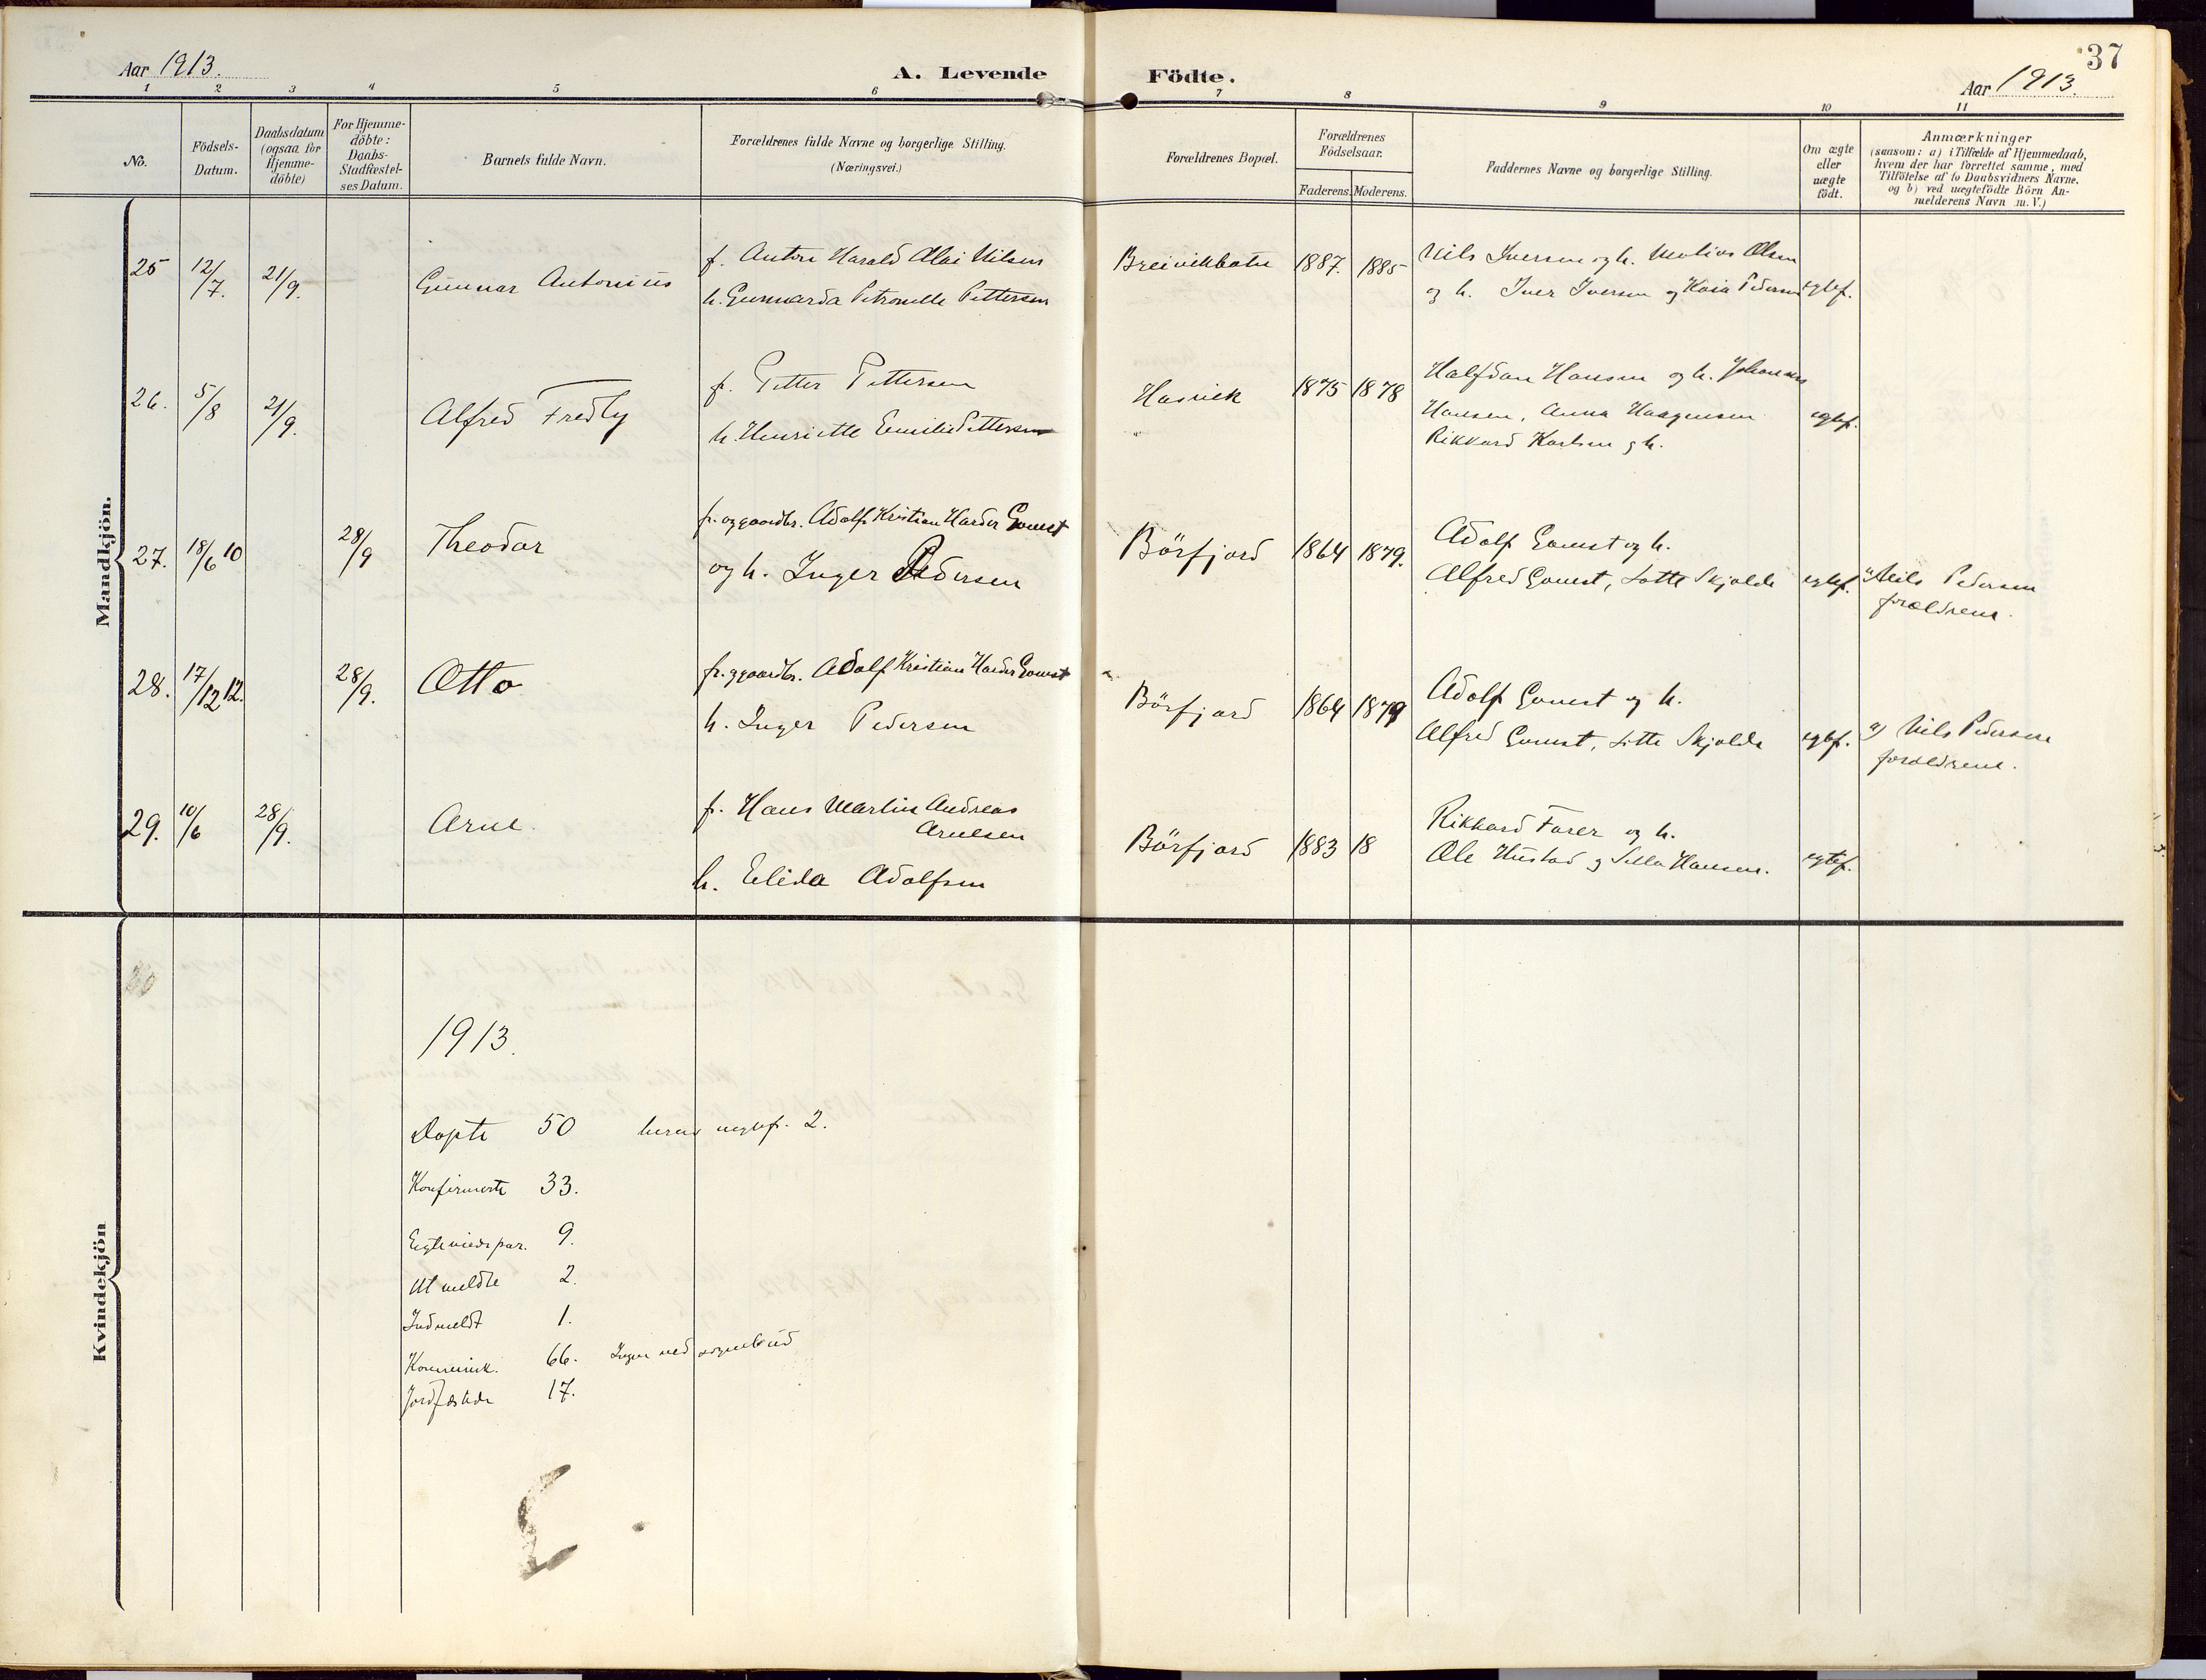 37
Aar 1913.
A. Levende Födte.
Aar 1913.
1 2 3 4 5 6 7 8 9 10 11
No.
Födsels-
Datum.
Daabsdatum
(ogsaa for
Hjemme-
döbte)
For Hjemme-
döbte:
Daabs-
Stadfæstel-
ses Datum.
Barnets fulde Navn.
Forældrenes fulde Navne og borgerlige Stilling.
(Næringsvei.)
Forældrenes Bopæl.
Forældrenes
Födselsaar.
Faderens. Moderens.
Faddernes Navne og borgerlige Stilling.
Om ægte
eller
uægte
födt.
Anmærkninger
(saasom: a) i Tilfælde af Hjemmedaab,
hvem der har forrettet samme, med
Tilföielse af to Daabsvidners Navne,
og b) ved uægtefödte Börn An-
melderens Navn m. V.)
Mandkjön.
25 12/7. 21/9. Gunnar Antonius
f. Anton Harald Nilsen
h. Gunnarda Petronelle Pettersen
Breivikbotn 1887. 1885
Nils Iversen og h. Olsen
og h. Iver Iversen og Kaia Pedersen egtef.
26. 5/8 21/9. Alfred Fredly
f. Petter Pettersen
h. Henriette Emilie Pettersen
Hasvick 1875 1878
Halfdan Hansen og h. Johannes
Hansen, Anna Haagensen
Rikkard Karlsen og h.
egtef.
27. 18/6 10 28/9 Theodor
fr. og gaardbr. Adolf Kristian Harder Gamst
og h. Inger Pedersen
Börfjord 1864 1879.
Adolf Gamst og h.
Alfred Gamst, Lotte Skjolde egtef.
Nils Pedersen
forældrene.
28. 17/12 12. 28/9. Otto
fr. og gaardbr. Adolf Kristian Harder Gamst
h. Inger Pedersen
Börfjord 1864 1879
Adolf Gamst og h.
Alfred Gamst, Lotte Skjolde egtef.
a) Nils Pedersen
forældrene.
29. 10/6 28/9. Arne.
f. Hans Martin Andreas
Arnesen
h. Elida Adolfsen
Börfjord 1883 18
Rikkard Farer og h.
Ole Hustad og Hansen. egtef.
Kvindekjön
30
1913.
Döpte 50 herav uegtef. 2.
Konfirmerte 33.
Egteviede par. 9.
Utmeldte 2.
Indmeldt 1.
Kommunik. 66. Ingen ved sognebud
Jordfæstede 17.